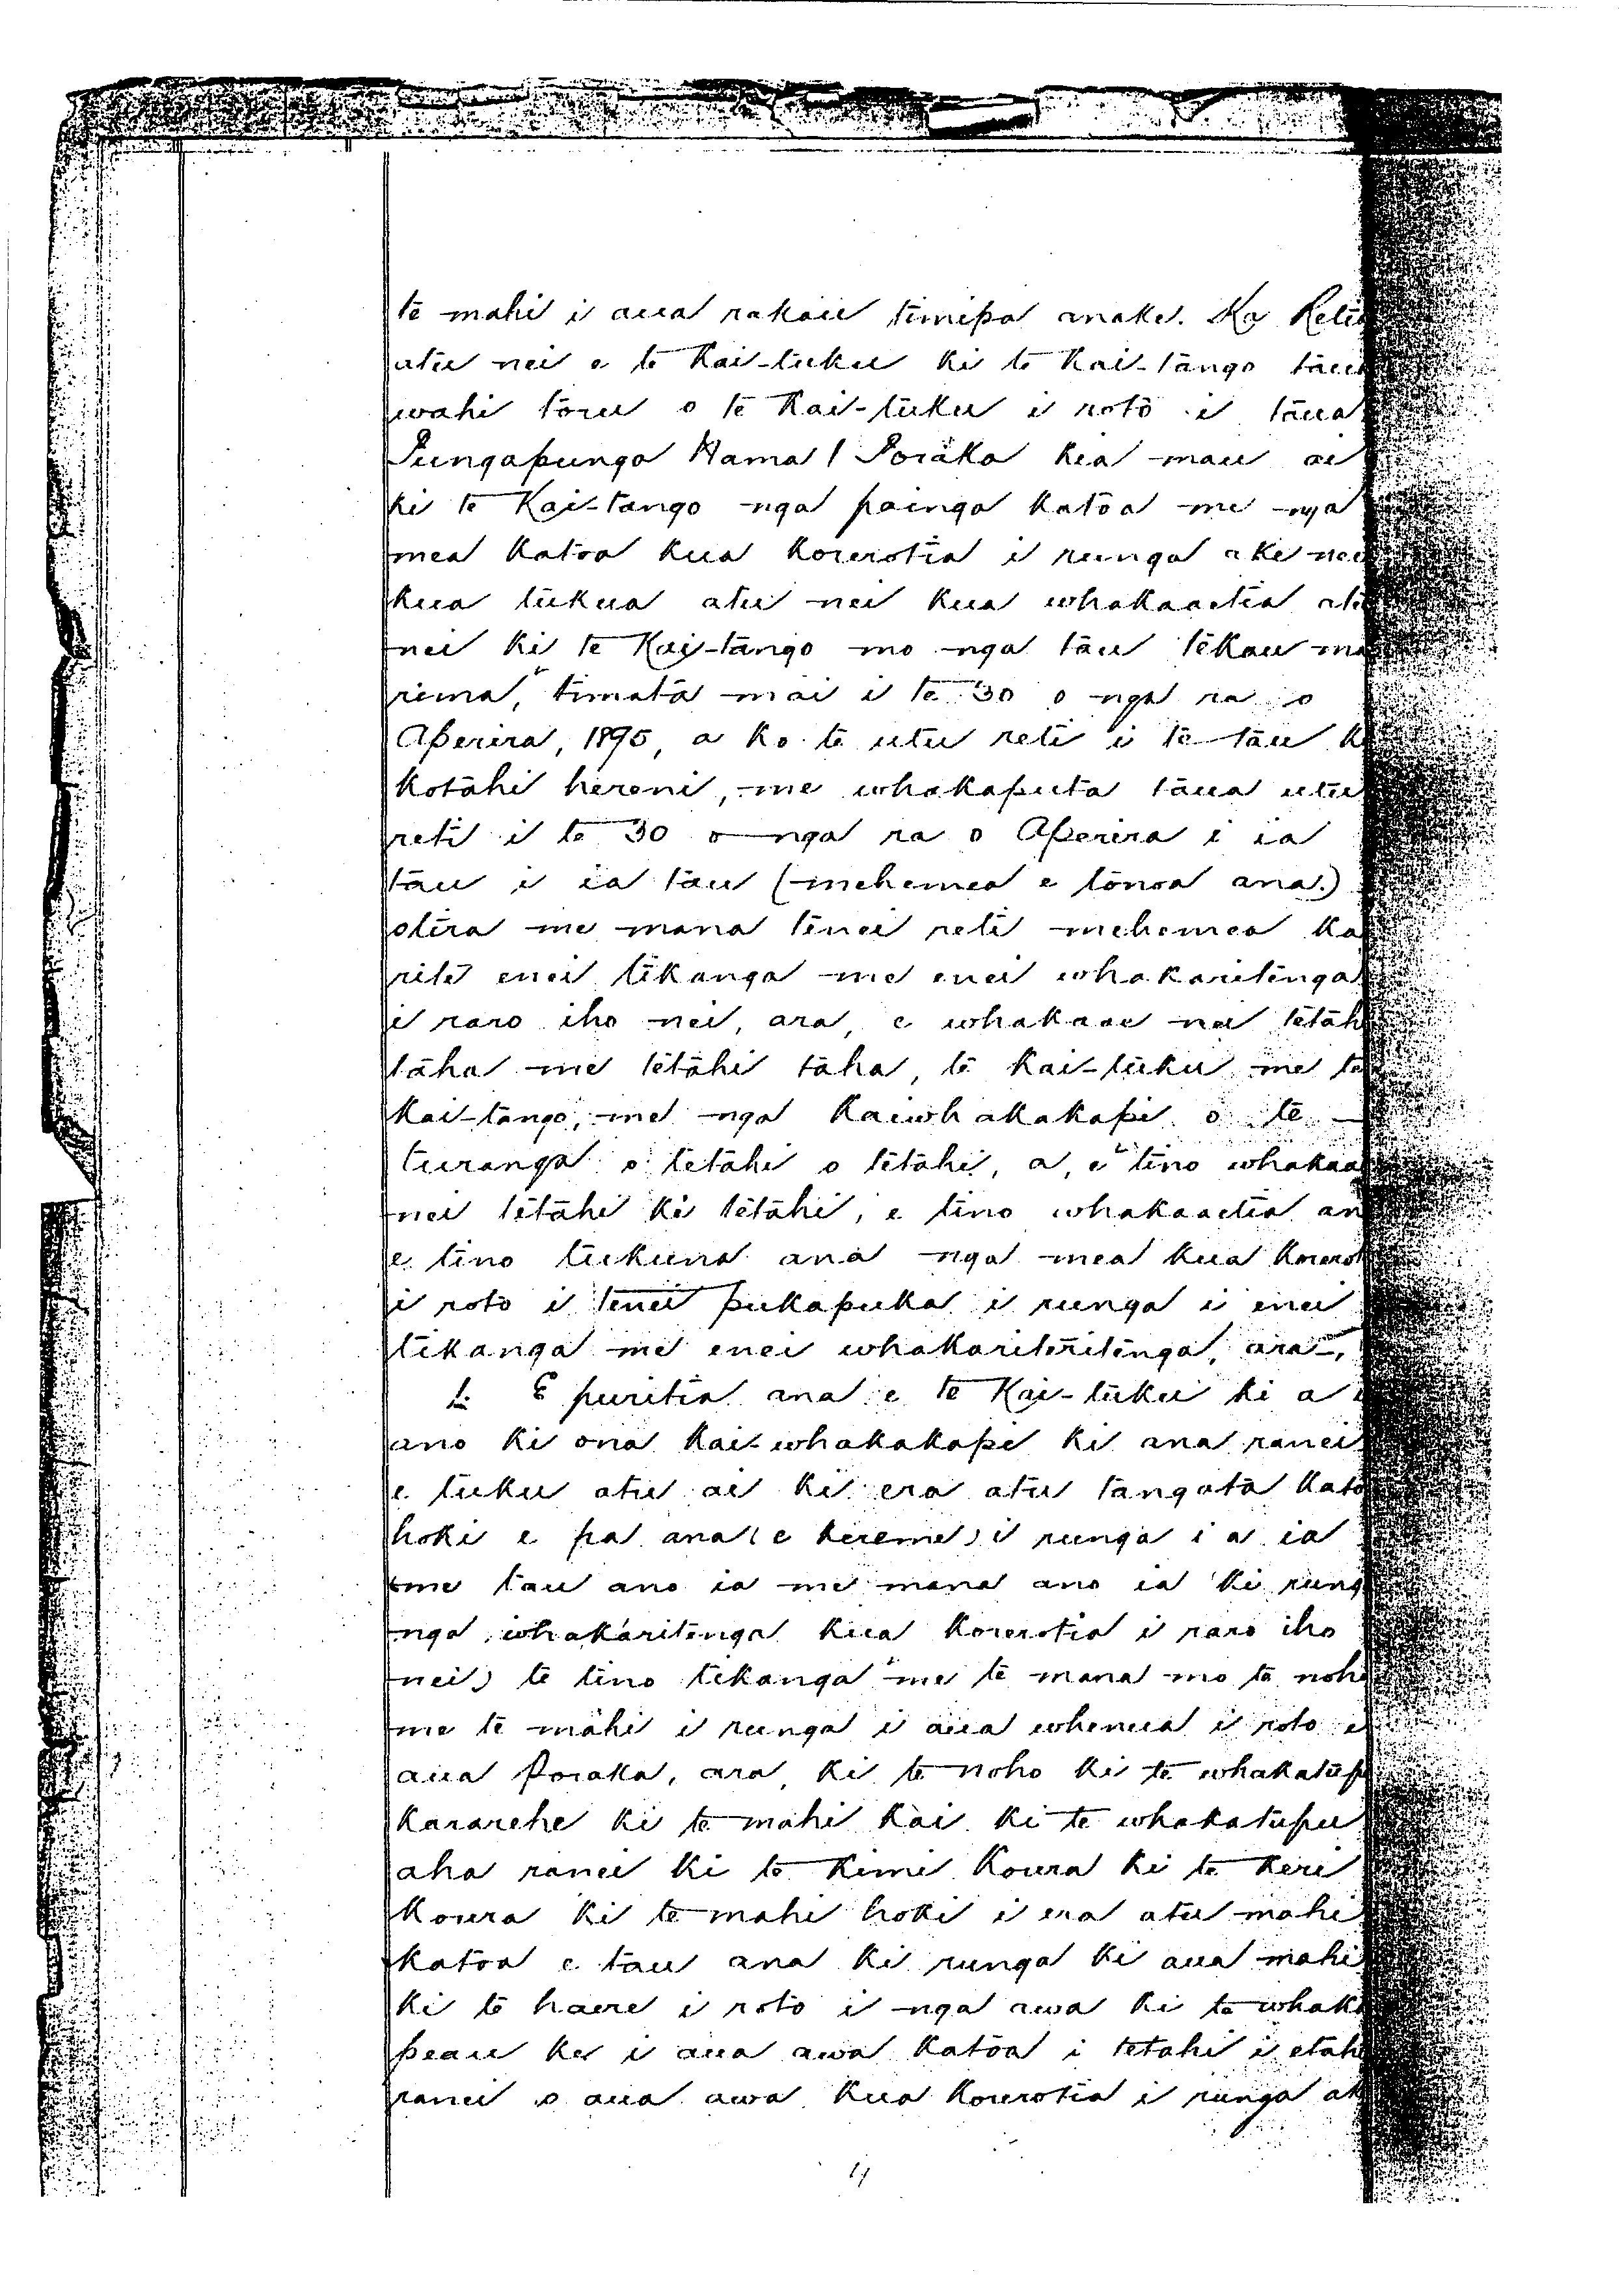 te mahi i aua rakau timipa anake. Ka Retia
atu nei e te Kai-tuku ki te Kai-tango taua
wahi toru o te Kai-tuku i roto i taua
Pungapunga Nama 1 Poraka kia mau ai
ki te Kai-tango nga painga katoa me nga
mea katoa kua korerotia i runga ake nei
kua tukua atu nei kua whakaaetia atu
nei ki te Kai-tango mo nga tau tekau ma
rima, timata mai i te 30 o nga ra o
Aperira, 1895, a ko te utu reti i te tau k
kotahi hereni, me whakaputa taua utu
reti i te 30 o nga ra o Aperira i ia
tau i ia tau (mehemea e tonoa ana.)
otira me mana tenei reti mehemea ka
rite enei tikanga me enei whakaritenga
i raro iho nei, ara, e whakaae nei tetah
taha me tetahi taha, te Kai-tuku me te
kai-tango, me nga Kaiwhakakapi o te
turanga o tetahi o tetahi, a, e tino whakaa
nei tetahi ki tetahi, e tino whakaaetia an
e tino tukuna ana nga mea kua korerot
i roto i tenei pukapuka i runga i enei
tikanga me enei whakariteritenga, ara,
1. E puritia ana e te Kai-tuku ki a i
ano ki ona kai-whakakapi ki ana ranei
e tuku atu ai ki era atu tangata kato
hoki e pa ana (e kereme) i runga i a ia
(me tau ano ia me mana ano ia ki rung
nga whakaritenga kua korerotia i raro iho
nei) te tino tikanga me te mana mo te noho
me te mahi i runga i aua whenua i roto i
aua Poraka, ara, ki te noho ki te whakatup
kararehe ki te mahi kai ki te whakatupu
aha ranei ki te kimi koura ki te keri
koura ki te mahi hoki i era atu mahi
katoa e tau ana ki runga ki aua mahi
ki te haere i roto i nga awa ki te whaka
peau ke i aua awa katoa i tetahi i etah
ranei o aua awa kua korerotia i runga ak